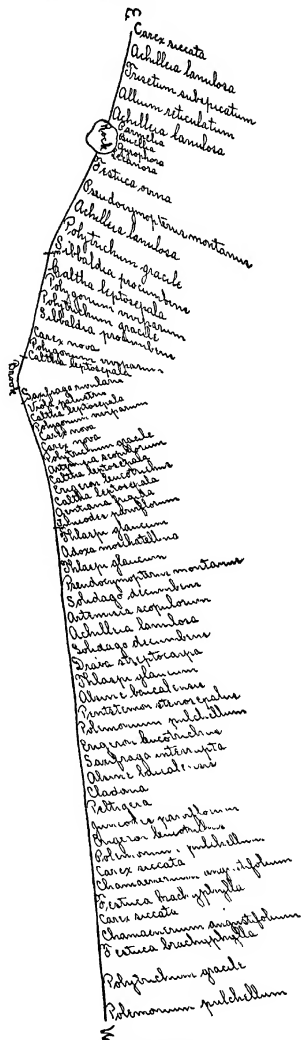 E
Carex siccata
Achilleia lanulosa
Trisetum subspicatum
Allium reticulatum
Achilleia lanulosa
Rock
Parmelia
Buellia
Gyrophora
Lecanora
Festuca ovina
Pseudocymopterus montanus
Achilleia lanulosa
Polytrichum gracile
Sibbaldia procumbens
Caltha leptosepala
Polygonum viviparum
Polytrichum gracile
Sibbaldia procumbens
Carex nova
Polygonum viviparum
Caltha leptosepala
Brook
Saxifraga
Viola palustris
Caltha leptosepala
Polygonum viviparum
Carex nova
Carex nova
Polytrichum gracile
Artemisia scopulorum
Caltha leptosepala
Erigeron leucotrichus
Caltha leptosepala
Gentiana frigida
Juncodes parviflorum
Thlaspi glaucum
Adoxa moschatellina
Thlaspi glaucum
Pseudocymopterus montanus
Solidago decumbens
Artemisia scopulorum
Achilleia lanulosa
Solidago decumbens
Draba streptocarpa
Thlaspi glaucum
Alsine baicalensis
Pentstemon stenosepalus
Polemonium pulchellum
Erigeron leucotrichus
Saxifraga interrupta
Alsine baicalensis
Cladonia
Peltigera
Juncodes parviflorum
Erigeron leucotrichus
Polemonium pulchellum
Carex siccata
Chamaenerium angustifolium
Festuca brachyphylla
Carex siccata
Chamaenerium angustifolium
Festuca brachyphylla
Polytrichum gracile
Polemonium pulchellum
W